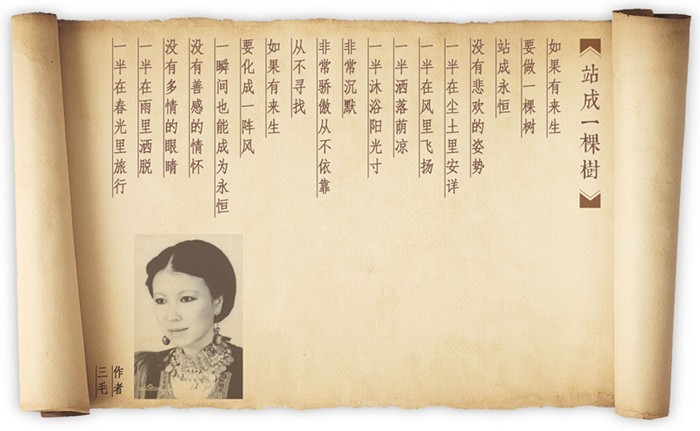 站成一棵樹
如果有来生
要做一棵树
站成永恒
没有悲欢的姿势
一半在尘土里安详
一半在风里飞扬
一半洒落荫凉
一半沐浴阳光寸
非常沉默
非常骄傲从不依靠
从不寻找
如果有来生
要化成一阵风
一瞬间也能成为永恒
没有善感的情怀
没有多情的眼睛
一半在雨里洒脱
一半在春光里旅行
作者
三毛